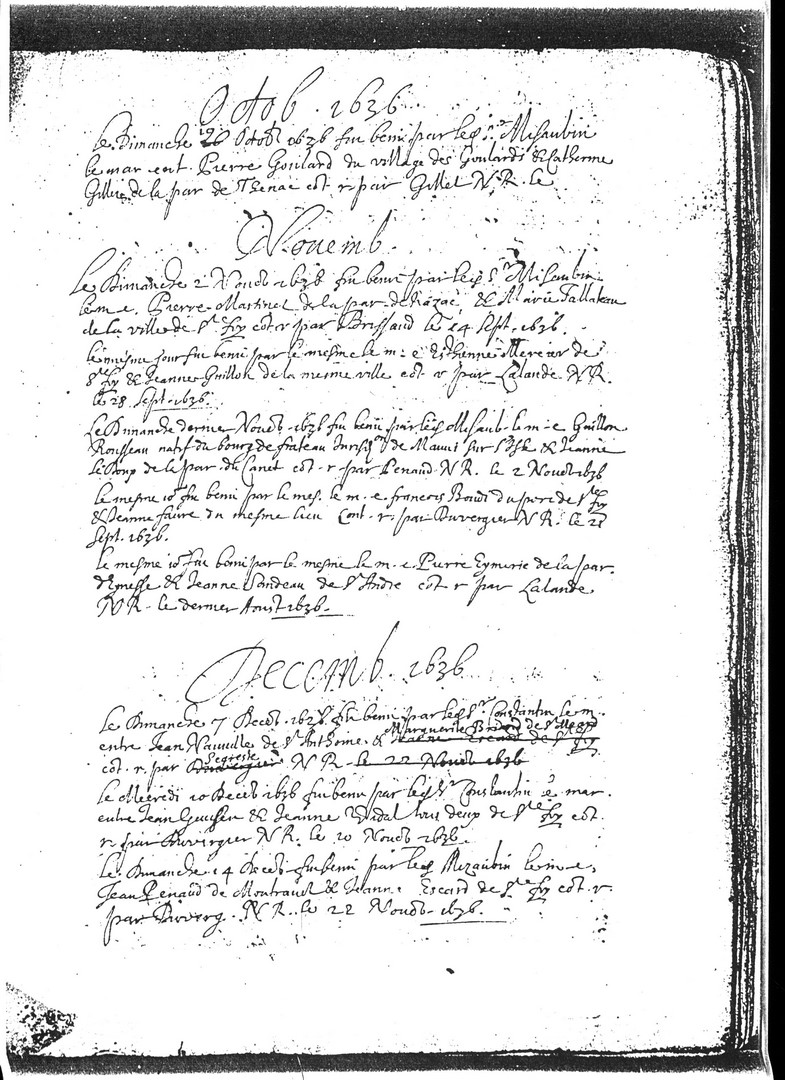 Octob. 1636
le Dimanche 26 Octob 1636 fut beni par le sr Misaubin
le mar. ent. Pierre Goulard du village des Goulards & Catherine
Gillet de la par de Thenac cot. r par Gillet N. R. le
Nouemb.
Le Dimanche 2 Nouēb 1636 fut beni par le sr Misaubin
le m. e. Pierre Martinet de la par. de & Marie Tallateau
de la ville de Ste foy cot. r par Brissaud le 14 sept. 1636.
le mesme jour fut beni par le mesme le m: e Esthienne Mercier de
Ste foy & Jeanne Guillon de la mesme ville cot r par Lalande N. R.
le 28 sept. 1636.
Le Dimanche dernier Nouēb. 1636 fut beni par le sr Misaub. le m. e Guillon
Rousseau natif du bourg de frateau Jurisson de sur l'Isle & Jeanne
Le Loup de la par. du Canet cot. r. par Penaud N R. le 2 Nouēb 1636
le mesme jo. fut beni par le mes. le m. e. francois Boudi du port de Ste foy
& Jeanne faure du mesme lieu Cont. r. par Duvergier N R. le 21
sept. 1636.
le mesme jo. fut beni par le mesme le m. e. Pierre Eymerie de la par.
d'Eynesse & Jeanne Sondeau de St Andre cot. r par Lalande
N R. le dernier Aoust 1636.
Decemb. 1636
Le Dimanche 7 Decēb. 1636 fut beni par le sr Constantin le m.
entre Jean Nauuille de St Anthoine & Marguerite de St
cot. r par Segreste N R. le 22 Nouēb 1636
le Mecredi 10 Decēb 1636 fut beni par le sr Constantin le mar.
entre Jean & Jeanne Vidal tous deux de Ste foy cot.
r. par Duvergier N R. le 20 Nouēb 1636.
le Dimanche 14 Decēb. fut beni par le sr Mizaubin le m. e.
Jean Renaud de Montrauel & Jeanne Escard de Ste foy cot. r.
par Duverg. N R. le 22 Nouēb. 1636.